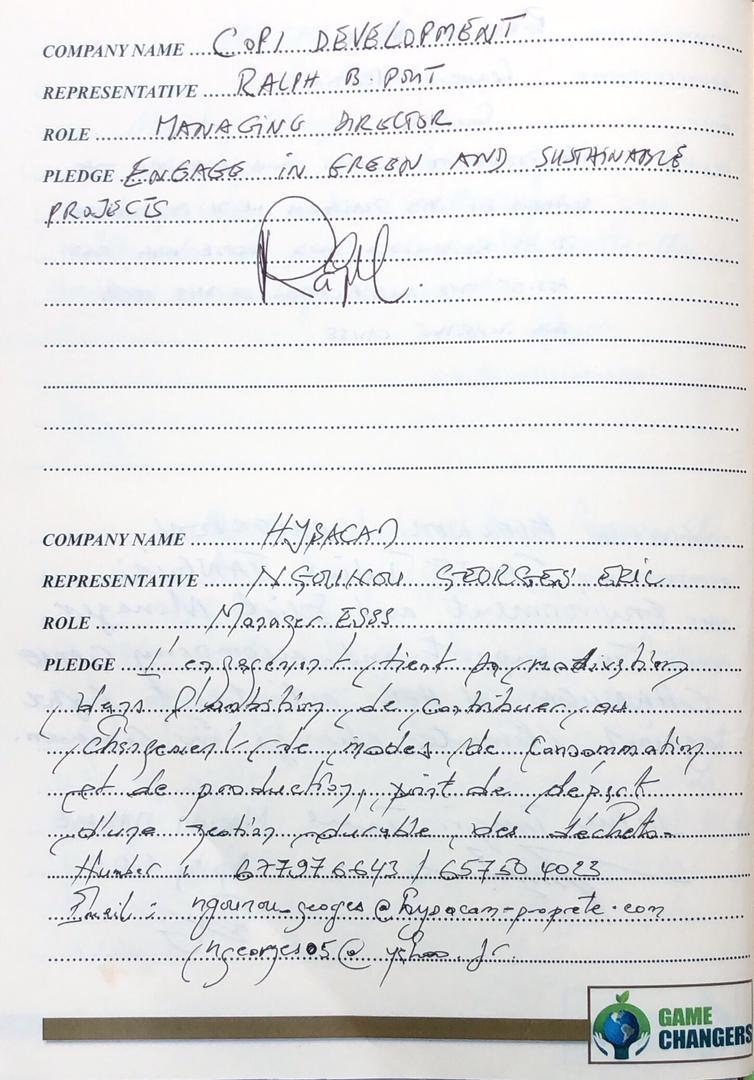 COMPANY NAME COPI DEVELOPMENT
REPRESENTATIVE RALPH B. PONT
ROLE MANAGING DIRECTOR
PLEDGE ENGAGE IN GREEN AND SUSTAINABLE
PROJECTS
Ralph.
COMPANY NAME HYSACAM
REPRESENTATIVE NGOUNOU GEORGES ERIC
ROLE Manager ESSS
PLEDGE L'engagement tient sa motivation
dans l'ambition de contribuer au
changement de modes de consommation
et de production, point de départ
d'une gestion durable des déchets.
Number : 677976643 / 657504023
Email : ngounou_georges@hysacam-proprete.com
ngeorges05@yahoo.fr
GAME
CHANGERS